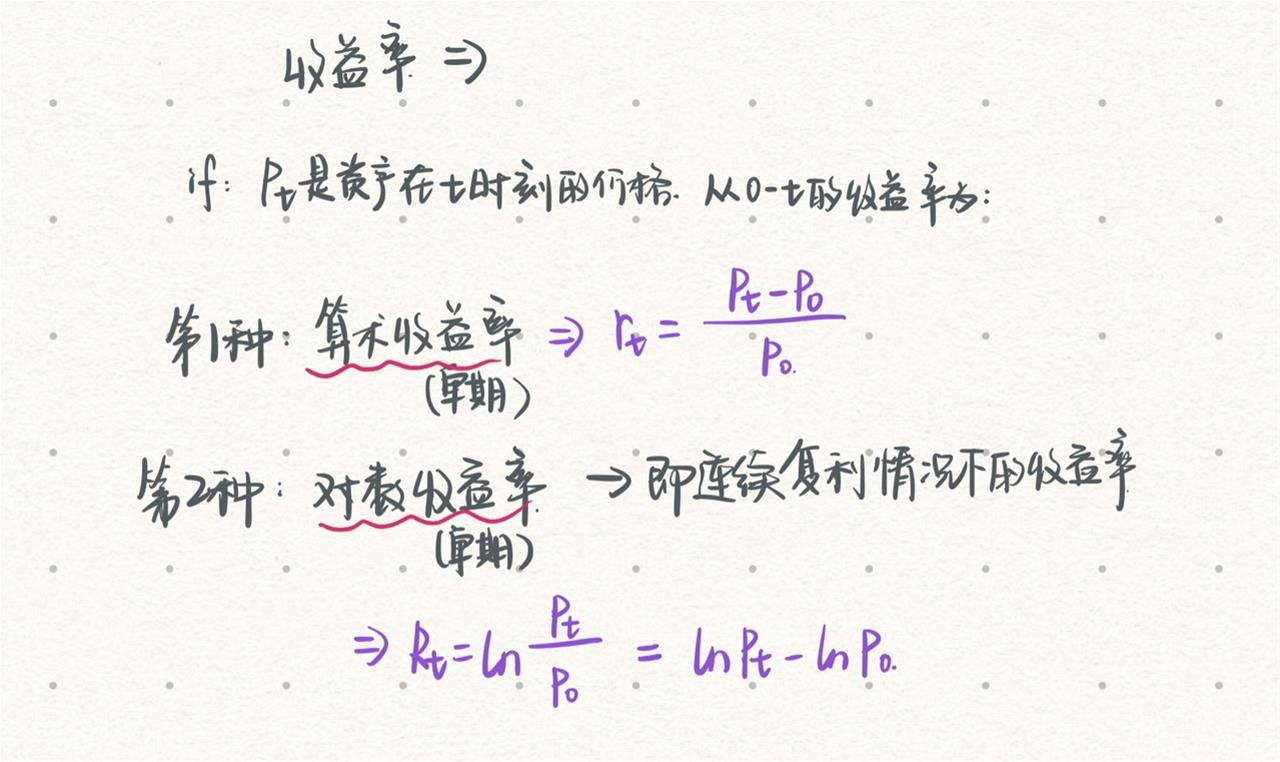 收益率 ⇒
if: Pt是资产在t时刻的价格. 从0-t的收益率为:
第1种: 算术收益率 ⇒ rt = (Pt-P0)/P0.
(单期)
第2种: 对数收益率 → 即连续复利情况下的收益率
(单期)
⇒ Rt = ln Pt/P0 = lnPt - lnP0.